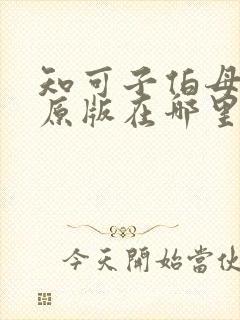 知可子伯母
原版在哪里
今天開始當伙